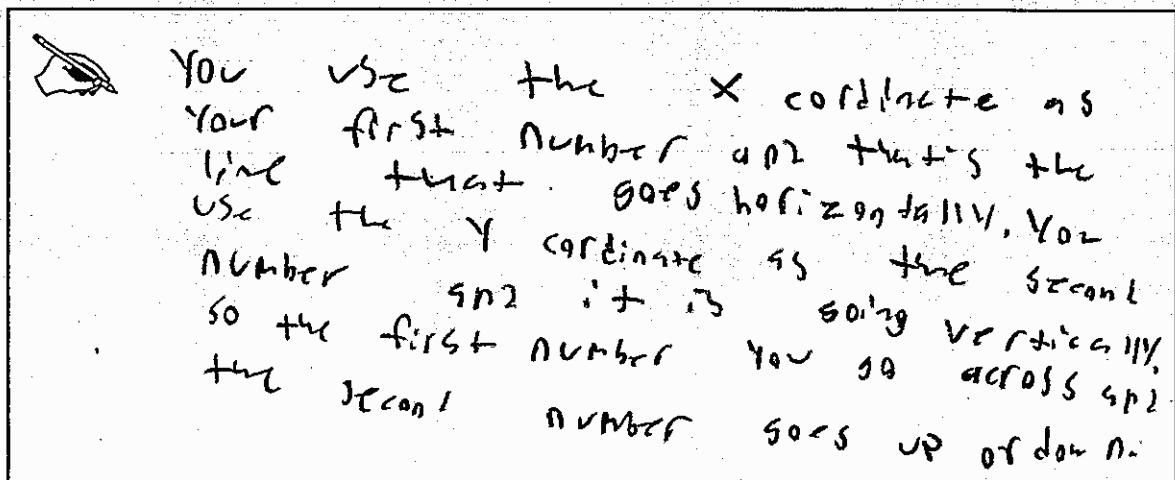 You use the x cordinate as
Your first number and that's the
line that goes horizontally. You
use the Y cordinate as the second
number and it is going vertically.
so the first number you go across and
the second number goes up or down.